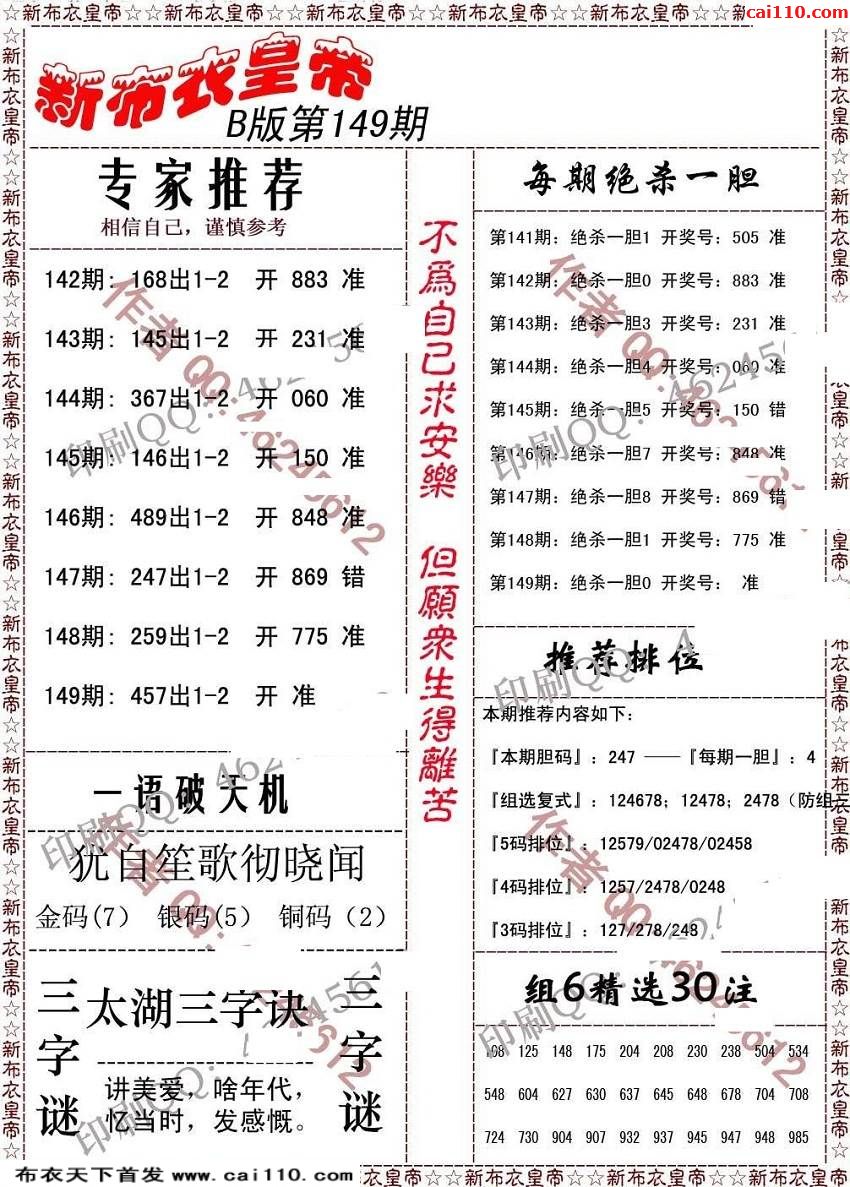 ☆☆新布衣皇帝☆☆新布衣皇帝☆☆新布衣皇帝☆☆新布衣皇帝☆☆新布衣皇帝☆☆
cai110.com
新布衣皇帝
B版第149期
专家推荐
相信自己，谨慎参考
142期: 168出1-2 开 883 准
143期: 145出1-2 开 231 准
144期: 367出1-2 开 060 准
145期: 146出1-2 开 150 准
146期: 489出1-2 开 848 准
147期: 247出1-2 开 869 错
148期: 259出1-2 开 775 准
149期: 457出1-2 开 准
一语破天机
犹自笙歌彻晓闻
金码(7) 银码(5) 铜码（2）
三字谜
太湖三字诀
讲美爱，啥年代，
忆当时，发感慨。
三字谜
不為自己求安樂 但願衆生得離苦
每期绝杀一胆
第141期: 绝杀一胆1 开奖号: 505 准
第142期: 绝杀一胆0 开奖号: 883 准
第143期: 绝杀一胆3 开奖号: 231 准
第144期: 绝杀一胆4 开奖号: 060 准
第145期: 绝杀一胆5 开奖号: 150 错
第146期: 绝杀一胆7 开奖号: 848 准
第147期: 绝杀一胆8 开奖号: 869 错
第148期: 绝杀一胆1 开奖号: 775 准
第149期: 绝杀一胆0 开奖号: 准
推荐排位
本期推荐内容如下:
『本期胆码』: 247 ——『每期一胆』: 4
『组选复式』: 124678; 12478; 2478（防组三
『5码排位』: 12579/02478/02458
『4码排位』: 1257/2478/0248
『3码排位』: 127/278/248
组6精选30注
108 125 148 175 204 208 230 238 504 534
548 604 627 630 637 645 648 678 704 708
724 730 904 907 932 937 945 947 948 985
作者QQ:46245612
印刷QQ:46245612
布衣天下首发 www.cai110.com
新布衣皇帝☆☆新布衣皇帝☆☆新布衣皇帝☆☆新布衣皇帝☆☆